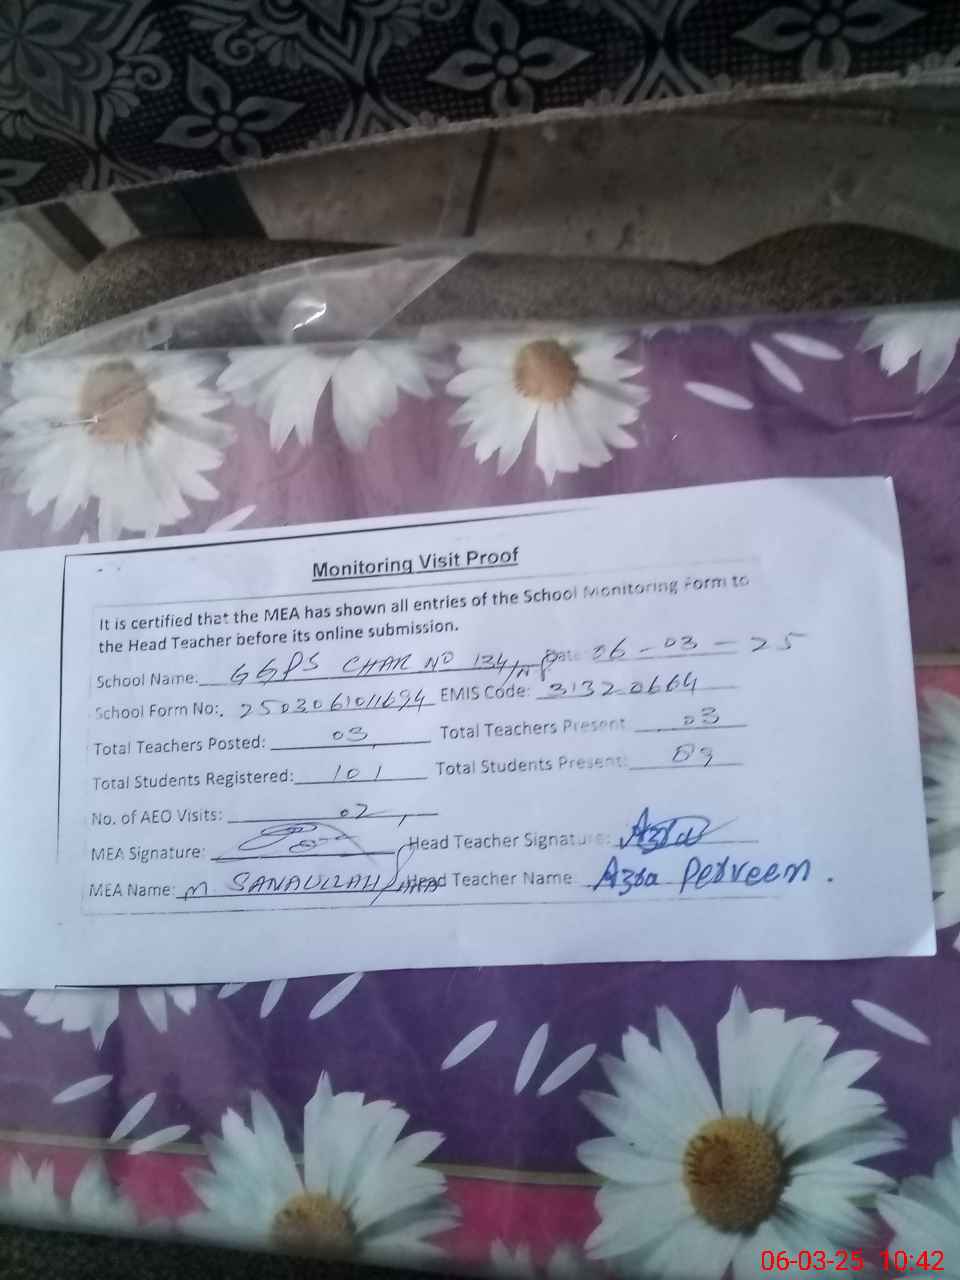 Monitoring Visit Proof
It is certified that the MEA has shown all entries of the School Monitoring Form to
the Head Teacher before its online submission.
School Name: GGPS CHAK NO 134/NP Date 06-03-25
School Form No:. 2503061011694 EMIS Code: 31320664
Total Teachers Posted: 03 Total Teachers Present 03
Total Students Registered: 101 Total Students Present: 89
No. of AEO Visits: 02
MEA Signature: Head Teacher Signature: Azra
MEA Name: M. SANAULLAH Head Teacher Name Azra Perveen.
06-03-25 10:42